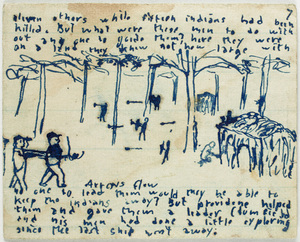 7
eleven others while fifteen indians had been
killed. But what were these men to do with
out any one to lead them? here they were
on an island they knew not how large with
Arrows flow
no one to lead them would they be able to
keep the indians away? But providence helped
them and gave them a leader
and his men had done a little exploring
since the last ship went away.